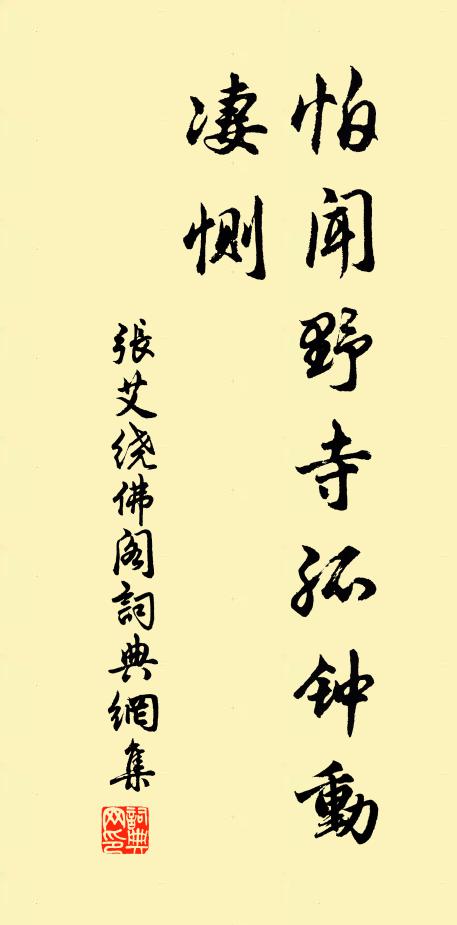 怕闻野寺孤钟動
凄恻
張艾绕佛阁詞典網集
詞典网印